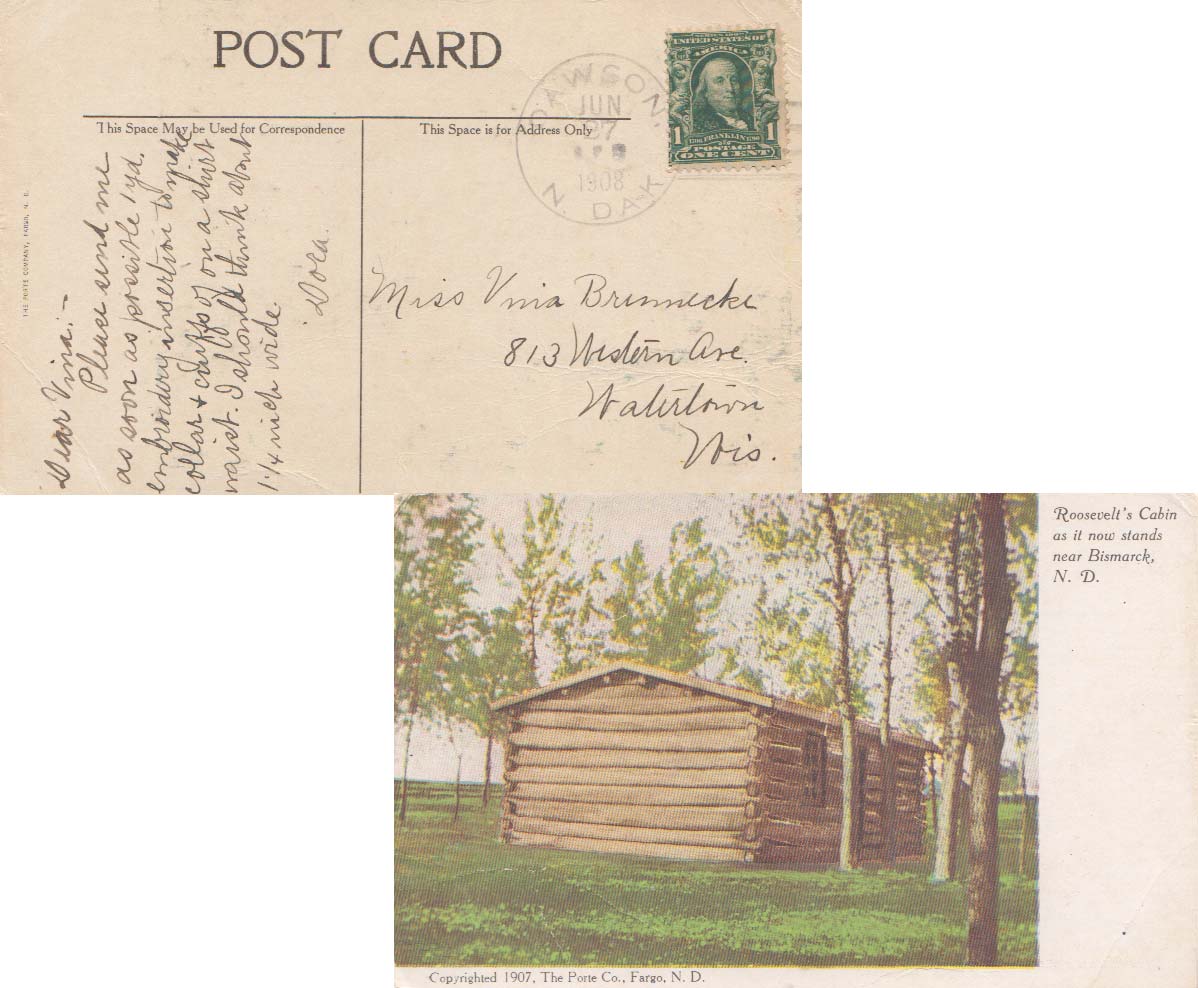 POST CARD
This Space May be Used for Correspondence
This Space is for Address Only
THE PORTE COMPANY, FARGO, N. D.
DAWSON,
JUN
27
1908
N. DAK
SERIES 1902
UNITED STATES OF
AMERICA
1 FRANKLIN 1
POSTAGE
ONE CENT
Dear Vina:-
Please send me
as soon as possible 1 yd.
embroidery insertion to make
collar & cuffs of on a shirt
waist. I should think about
1 1/4 inch wide.
Dora.
Miss Vina Brennecke
813 Western Ave.
Watertown
Wis.
Roosevelt's Cabin
as it now stands
near Bismarck,
N. D.
Copyrighted 1907, The Porte Co., Fargo, N. D.